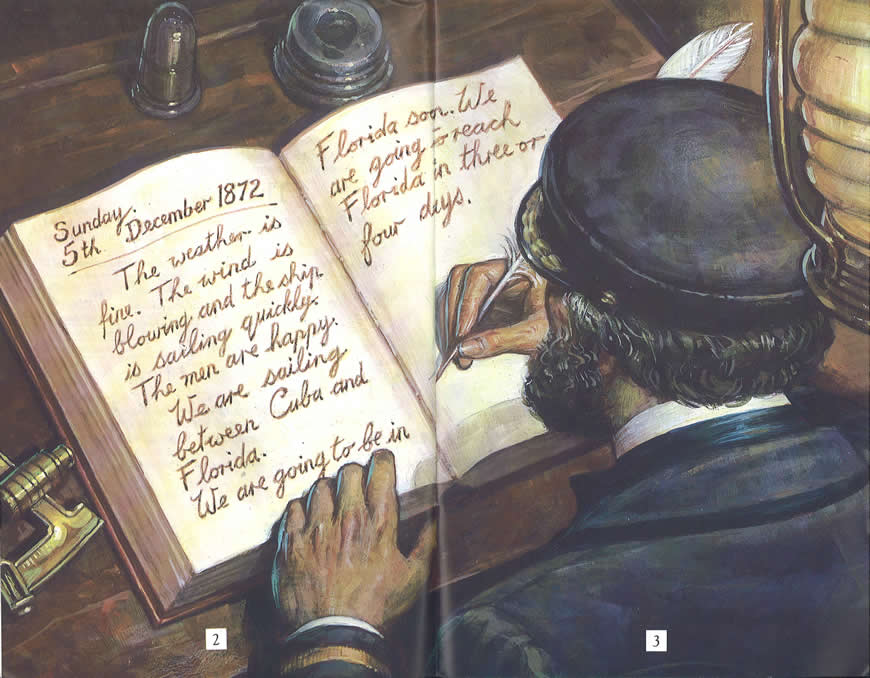 Sunday
5th December 1872
The weather is
fine. The wind is
blowing and the ship
is sailing quickly.
The men are happy.
We are sailing
between Cuba and
Florida.
We are going to be in
Florida soon. We
are going to reach
Florida in three or
four days.
2
3